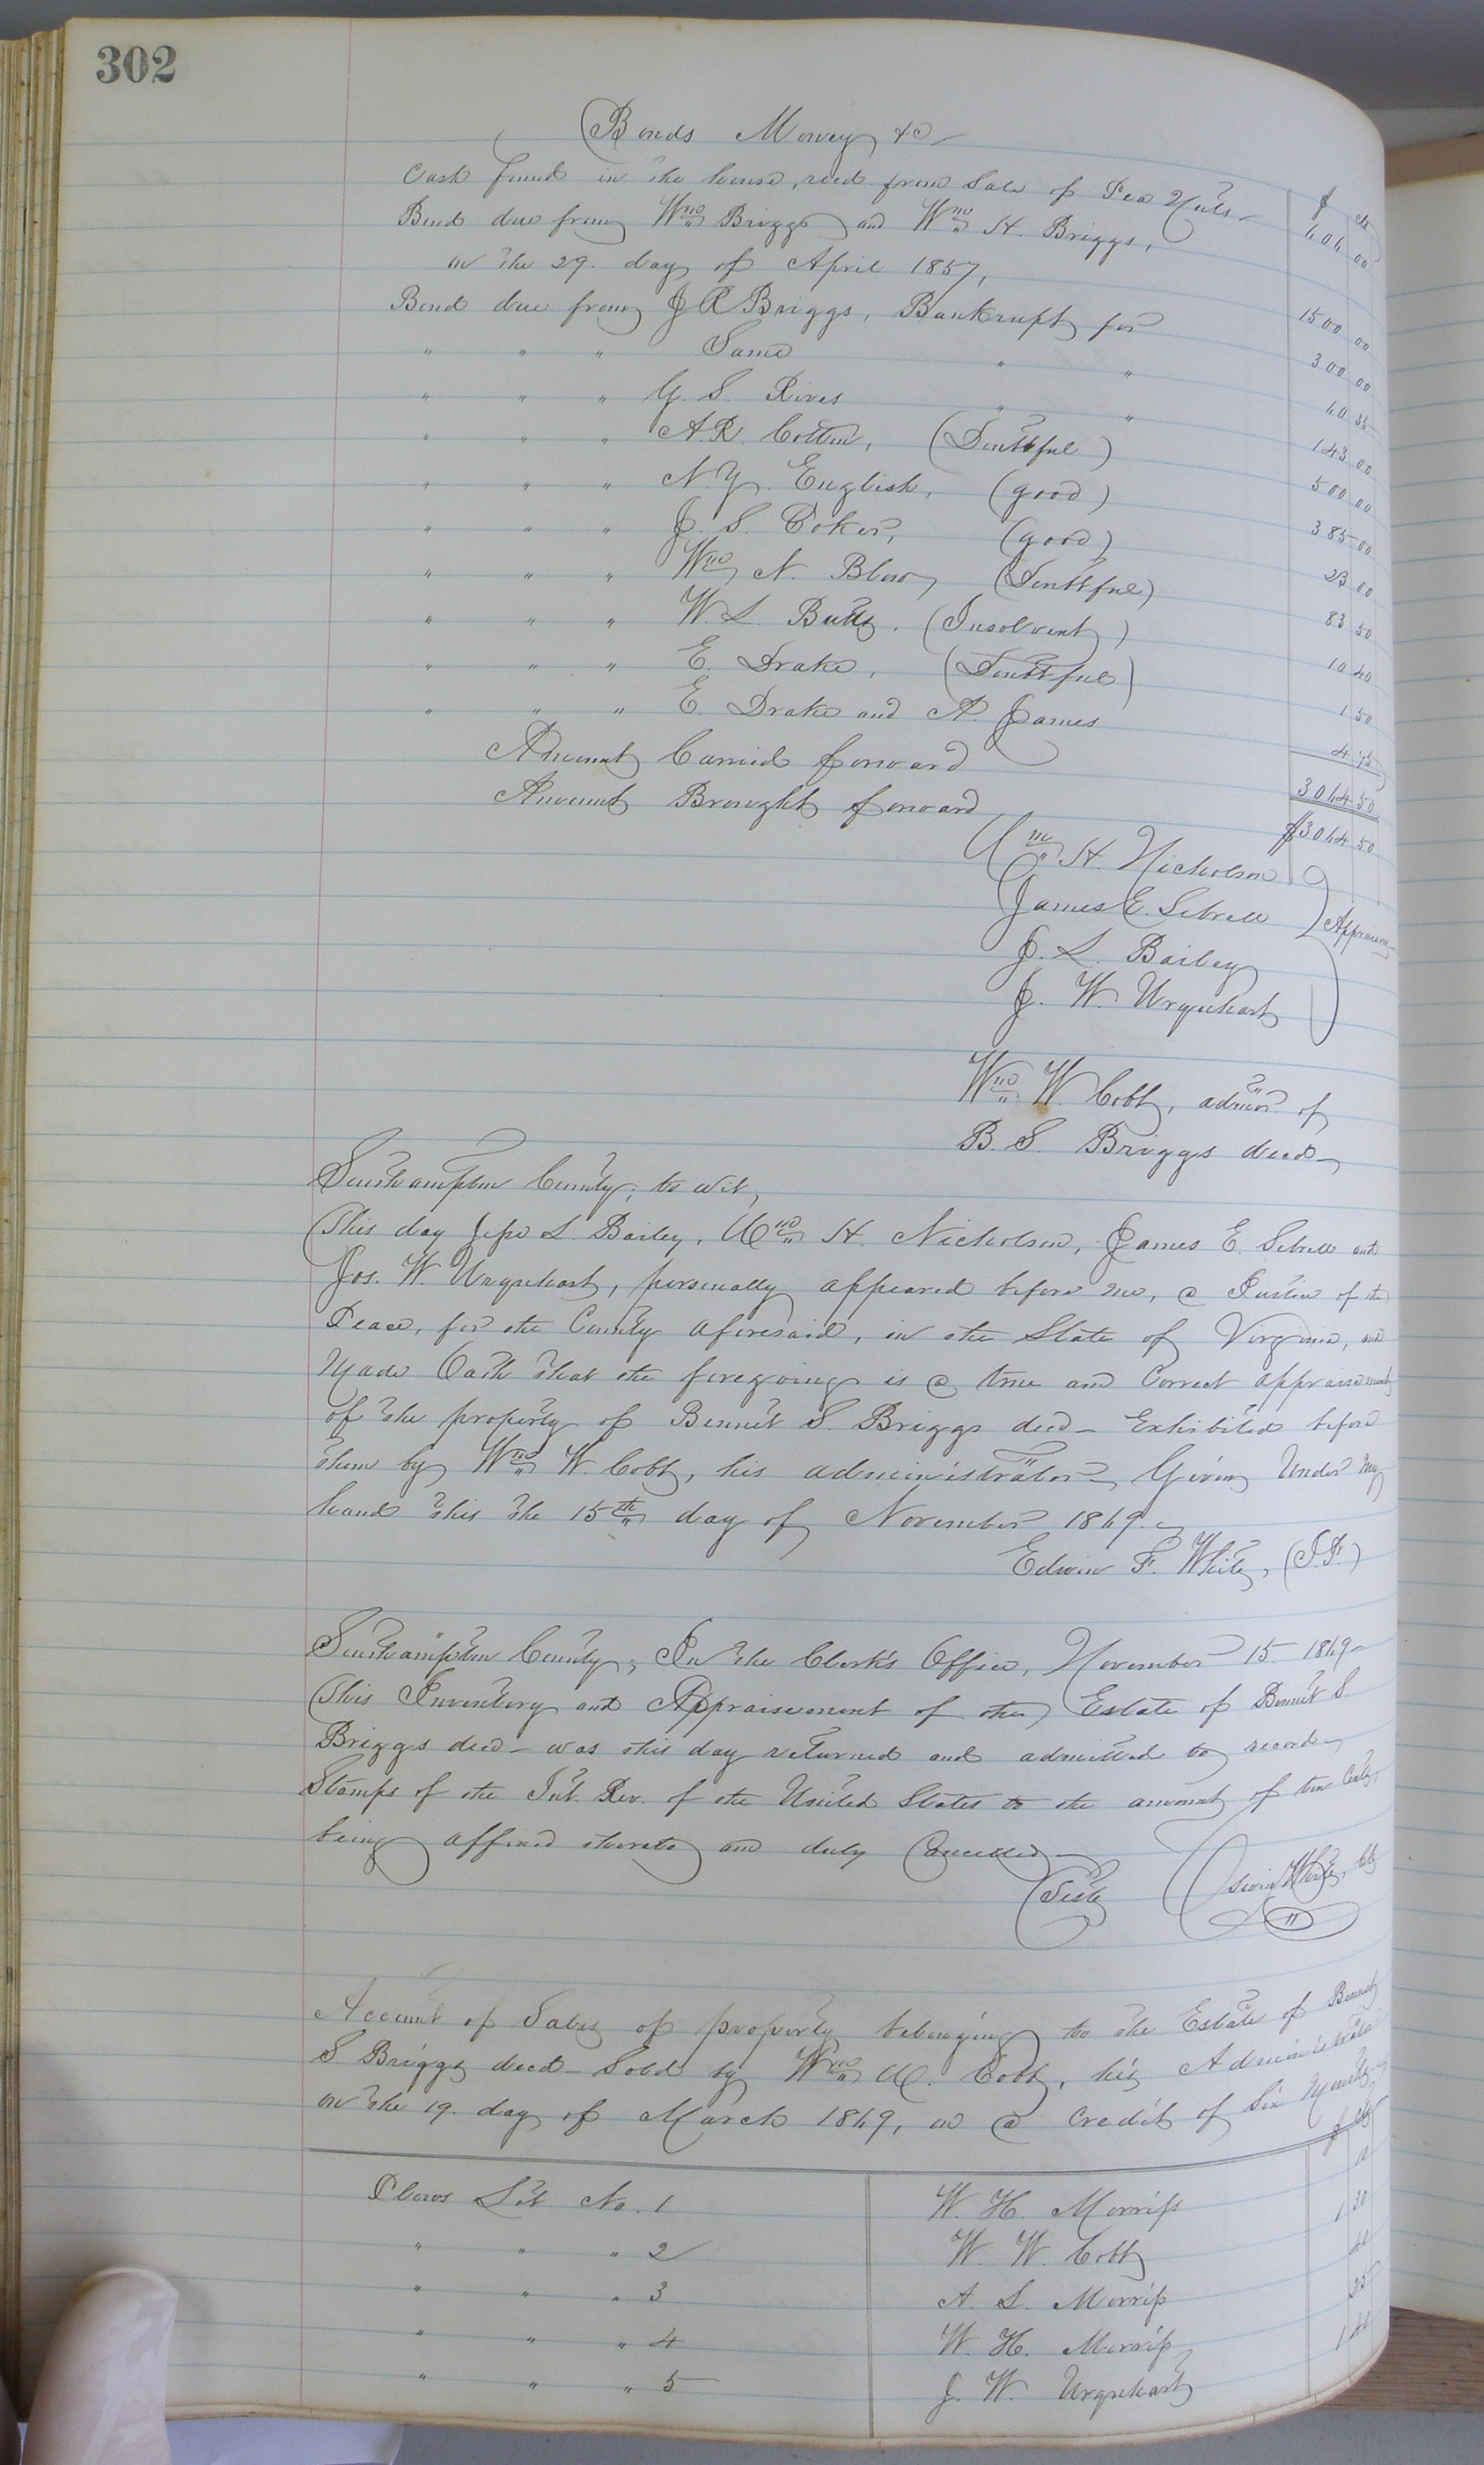 302
Bonds Money &c
$ cts
Cash found in the house, recd from Sale of Pea Nuts 606 00
Bond due from Wm Briggs and Wm H. Briggs,
on the 29. day of April 1857, 1500 00
Bond due from J R Briggs, Bankrupt for 300 00
" " " Same " " 60 35
" " " G. S. Rives " " 143 00
" " " A. R. Cotten, (Doubtful) 500 00
" " " N. Y. English, (good) 385 00
" " " J. S. Coker, (good) 23 00
" " " Wm N. Blow (Doubtful) 83 50
" " " W. L. Butts. (Insolvent) 10 40
" " " E. Drake, (Doubtful) 1 50
" " " E. Drake and A. James 4 75
Amount Carried forward 3064 50
Amount Brought forward $3064 50
Wm H. Nicholson
James E. Sebrell Appraisers
J. L. Bailey
J. W. Urquhart
Wm W. Cobb, admor of
B. S. Briggs decd
Southampton County; to wit,
This day L. Bailey, Wm H. Nicholson, James E. Sebrell and
Jos. W. Urquhart, personally appeared before me, a Justice of the
Peace, for the County aforesaid, in the State of Virginia, and
Made Oath that the foregoing is a true and Correct appraisement
of the property of Bennet S. Briggs decd Exhibited before
them by Wm W. Cobb, his administrator Given Under my
hand this the 15th day of November 1869.
Edwin F. White, (J.P.)
Southampton County; In the Clerk's Office, November 15 1869
This Inventory and Appraisement of the Estate of Bennet S.
Briggs decd was this day returned and admitted to record
Stamps of the Int. Rev. of the United States to the amount of ten Cents
being affixed thereto and duly Cancelled
Teste Oswin White, Clk
Account of Sales of property belonging to the Estate of Bennet
S. Briggs decd Sold by Wm W. Cobb, his Administrator
on the 19. day of March 1869, on a Credit of Six Months
$ cts
Plows Lot No. 1 W. H. Morriss 10
" " " 2 W. W. Cobb 1 30
" " " 3 A. S. Morriss
" " " 4 W. H. Morriss 25
" " " 5 J. W. Urquhart 1